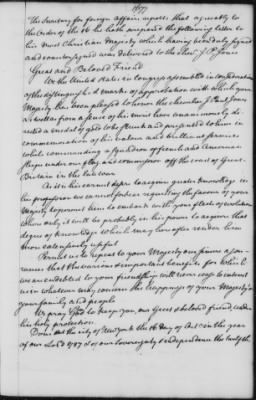 The Secretary for foreign Affairs reports that agreeably to
the Order of the 16 he hath prepared the following letter to
his most Christian Majesty which having been duly signed
and countersigned was delivered to the Chevr J. P. Jones
Great and Beloved Friend
We the United States in Congress assembled in consideration
of the distinguished marks of approbation with which your
Majesty has been pleased to honor the Chevalier J Paul Jones
as well as from a sense of his merit have unanimously di
rected a medal of gold to be struck and presented to him in
commemoration of his valour and brilliant services
while commanding a squadron of french and American
ships under our flag and commission off the coast of Great
Britain in the late war
As it is his earnest desire to acquire greater knowledge in
his profession we cannot forbear requesting the favour of your
Majesty to permit him to embark with your fleets of evolution
where only it will be probably in his power to acquire that
degree of knowledge which may hereafter render him
more extensively useful
Permit us to repeat to your Majesty our sincere assu
rances that the various & important benefits for which
we are indebted to your friendship will never cease to interest
us in whatever may concern the happiness of your Majesty
your family and people
We pray God to keep you, our Great & beloved friend, under
his holy protection
Done at the city of New York the 16 day of Oct in the year
of our Lord 1787 & of our sovereignty & independence the twelfth